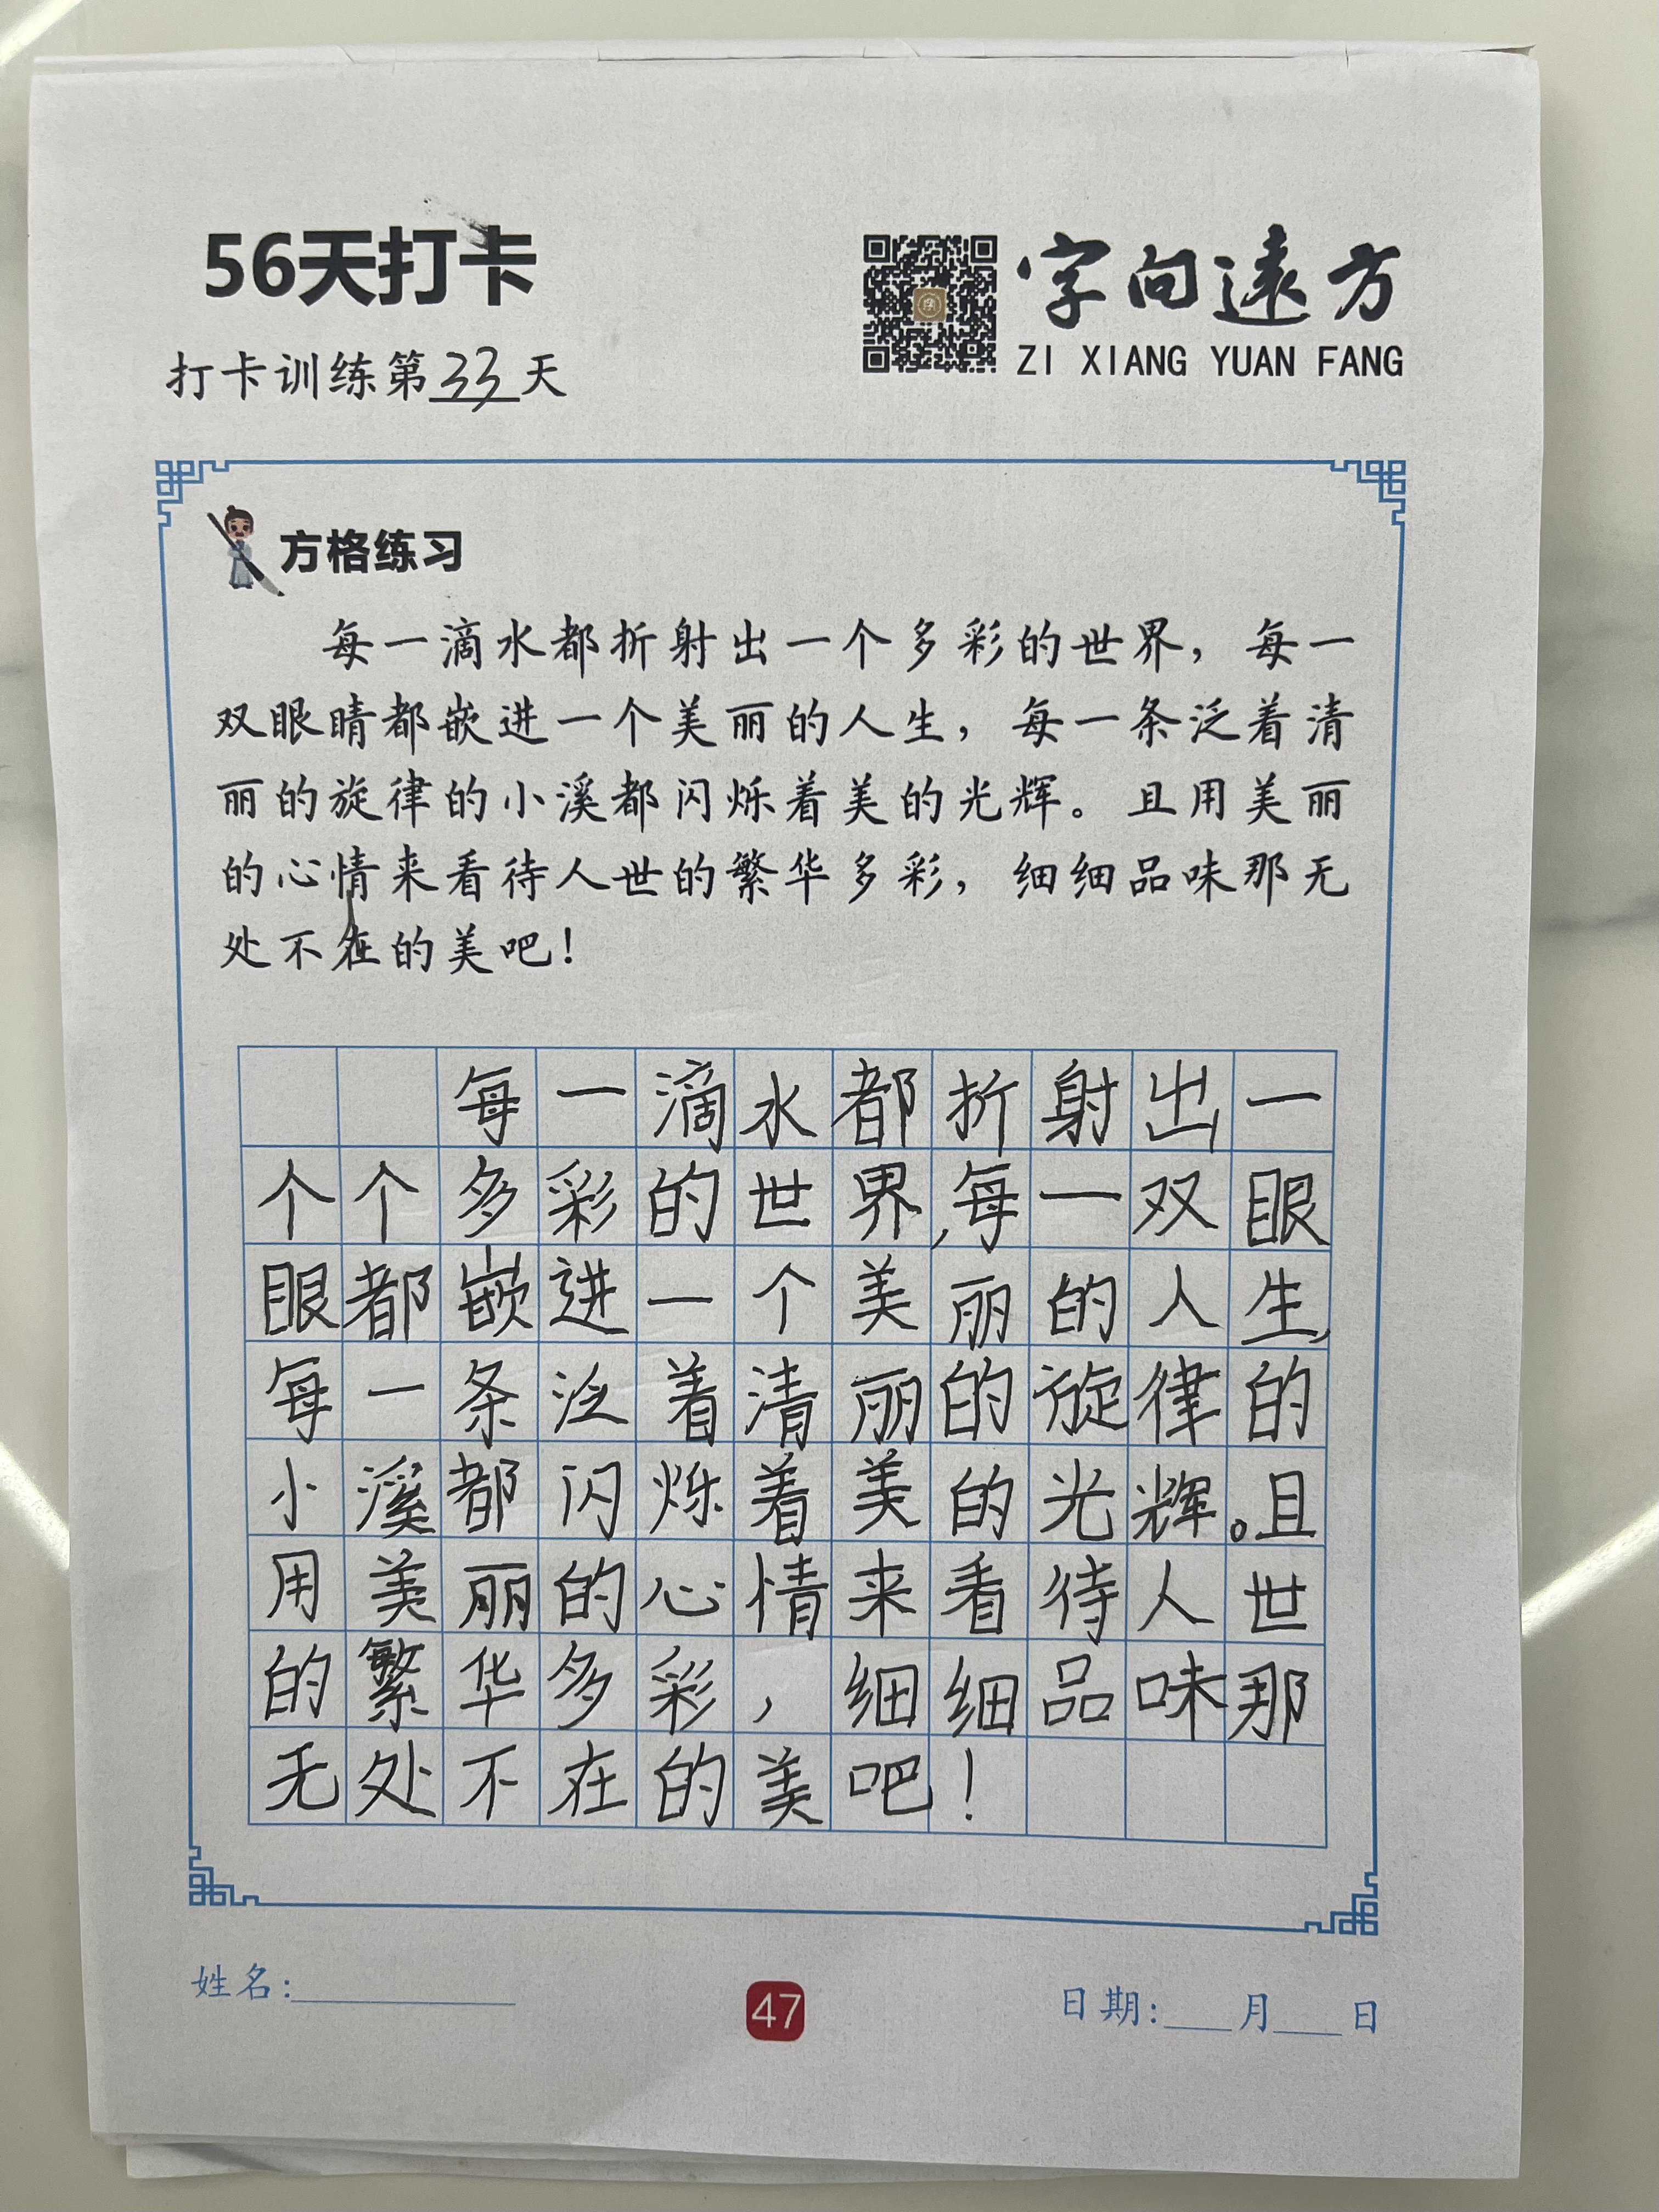 56天打卡
字向遠方
ZI XIANG YUAN FANG
打卡训练第33天
方格练习
每一滴水都折射出一个多彩的世界，每一
双眼睛都嵌进一个美丽的人生，每一条泛着清
丽的旋律的小溪都闪烁着美的光辉。且用美丽
的心情来看待人世的繁华多彩，细细品味那无
处不在的美吧！
每一滴水都折射出一
个个多彩的世界，每一双眼
眼都嵌进一个美丽的人生，
每一条泛着清丽的旋律的
小溪都闪烁着美的光辉。且
用美丽的心情来看待人世
的繁华多彩，细细品味那
无处不在的美吧！
姓名：
47
日期：月日